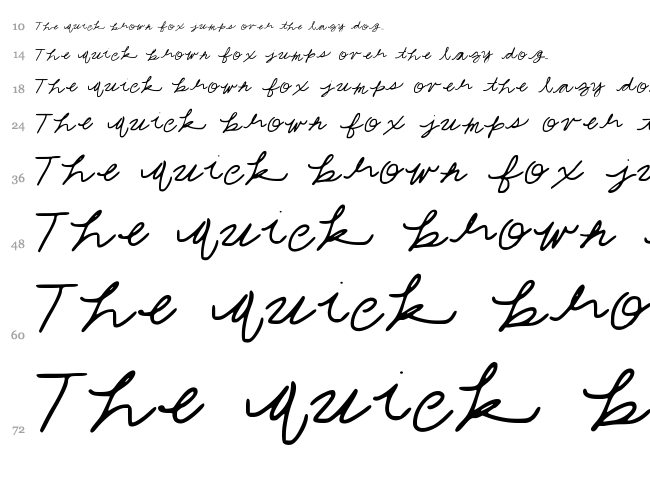 10 The quick brown fox jumps over the lazy dog.
14 The quick brown fox jumps over the lazy dog.
18 The quick brown fox jumps over the lazy do
24 The quick brown fox jumps over t
36 The quick brown fox ju
48 The quick brown
60 The quick bro
72 The quick b